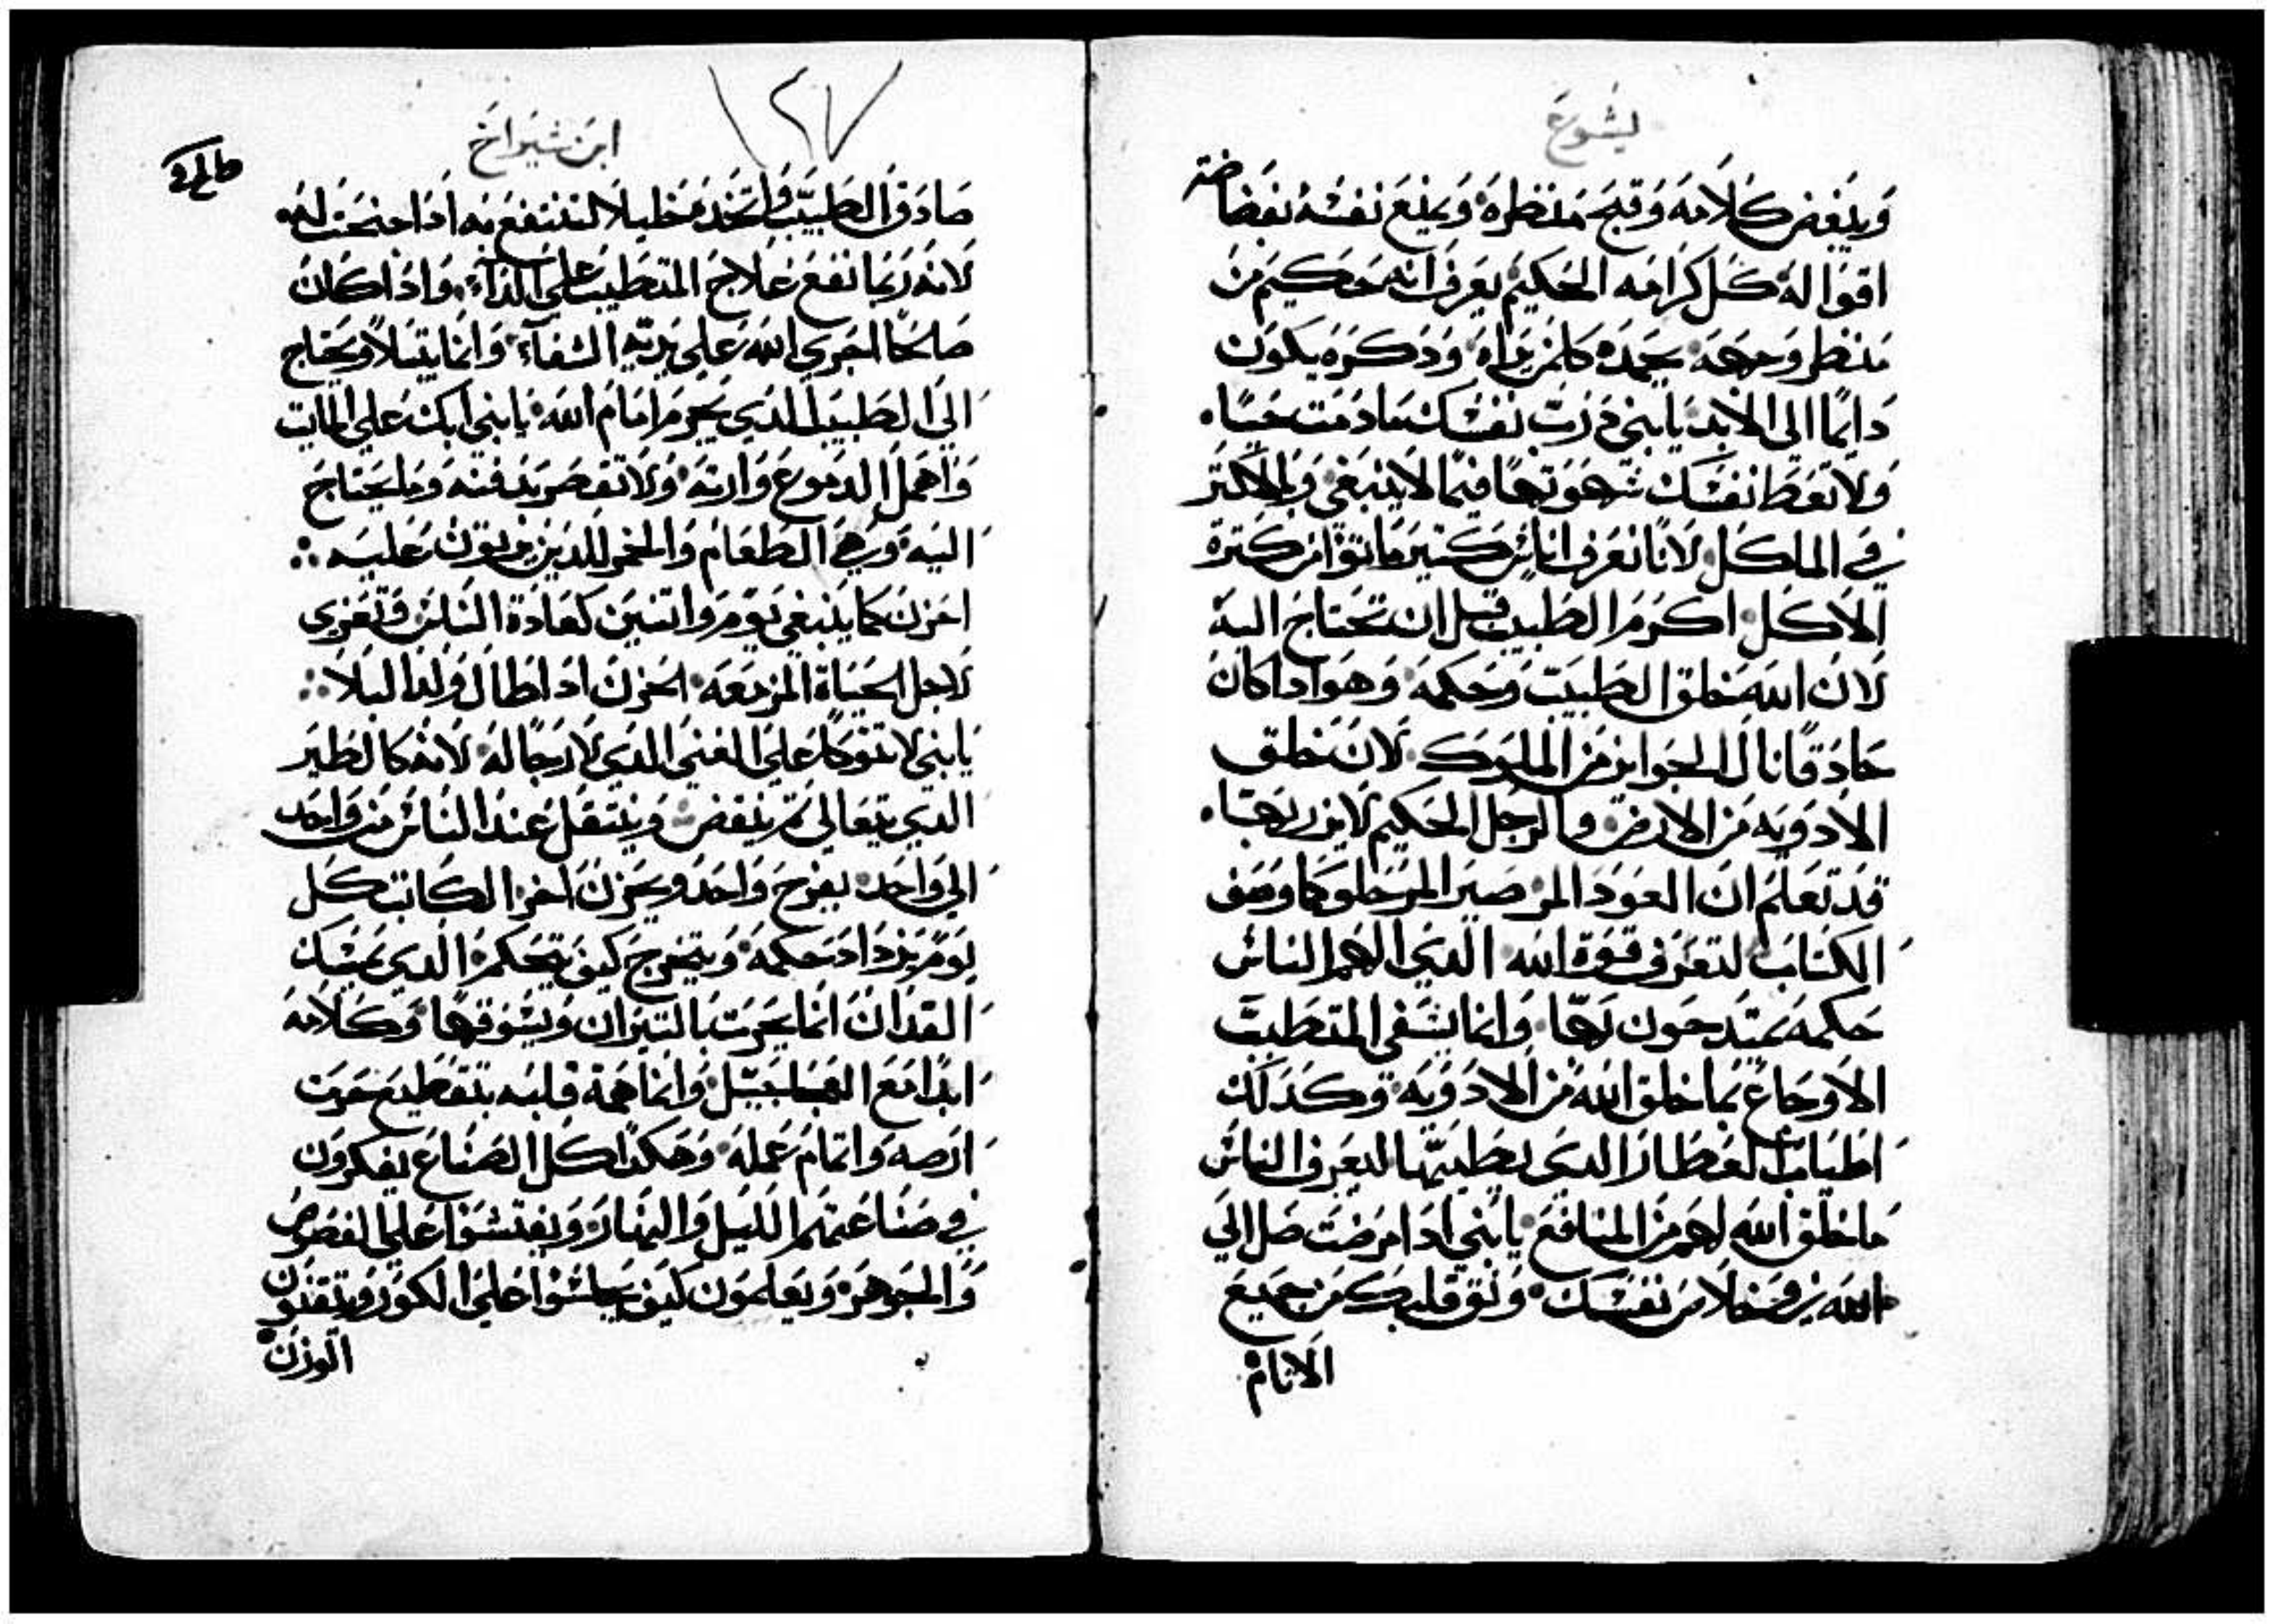 يشوع
وينغض كلامه وقبح منظره ويمنع نفسه بغضاضة
اقواله كل كرامه الحكيم يعرف انه حكيم من
منظر وجهه يحمده كلمن يراه وذكره يكون
دايمًا الي الابد يابني جرب نفسك مادمت حيًا
ولا تعط نفسك شهوتها فيما لا ينبغي ولا تكتر
في الماكل لانا نعرف اناس كتير ماتوا من كترة
الاكل اكرم الطبيب قبل ان تحتاج اليه
لان الله خلق الطبيب وحكمه وهو اذا كان
حادقًا نال الجوايز من الملوك لان خلق
الادويه من الارض والرجل الحكيم لا يزريها
قد تعلم ان العود المر صير المر حلو كما وصف
الكتاب لتعرف قوة الله الدي الهم الناس
حكمه يمتدحون بها وانما يشفي المتطبب
الاوجاع بما خلق الله من الادويه وكذلك
اطياب العطار الدي يطيبها ليعرف الناس
ما خلق الله لهم من المنافع يابني ادا مرضت صل الي
الله في خلاص نفسك ونق قلبك من جميع
الاتام
ابن شيراخ
صادق الطبيب واتخده خليلا لتنتفع به ادا احتجت له
لانه ربما نفع علاج المتطبب علي الداء واذا كان
صالحًا اجري الله علي يديه الشفاء وانما يتبلا ويحتاج
الي الطبيب الدي يجرم امام الله يابني ابك علي المايت
واهمل الدموع وارته ولا تقصر بدفنه وما يحتاج
اليه وهي الطعام والخمر للدين يرتون عليه
احزن كما ينبغي يوم واتنين كعادة الناس وتعزي
لاجل الحياة المزمعه الحزن ادا طال ولد البلا
يابني لا تتوكل علي الغني الدي لا رجا له لانه كالطير
الدي يتعالي تم ينقض وينتقل عند الناس من واحد
الي واحد يفرح واحد ويحزن اخر الكاتب كل
يوم يزداد حكمه ويتخرج كيف يتحكم الدي يمسك
الفدان انما يحرت بالتيران ويسوقها وكلامه
ابدا مع وانما همة قلبه بتقطيع حرت
ارضه واتمام عمله وهكدا كل الصناع يفكرون
في صناعتهم الليل والنهار ويفتشوا علي الفصوص
والجوهر ويعلمون كيف يجلسوا علي الكور ويتقنون
الوزن